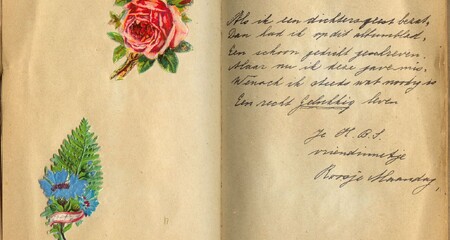 Als ik een dichtersgeest bezat,
Dan had ik op dit albumblad,
Een schoon gedicht geschreven.
Maar nu ik deze gave mis,
Wensch ik steeds wat noodig is
Een recht Gelukkig leven
Je H. B. S.
vriendinnetje
Roosje Maandag,